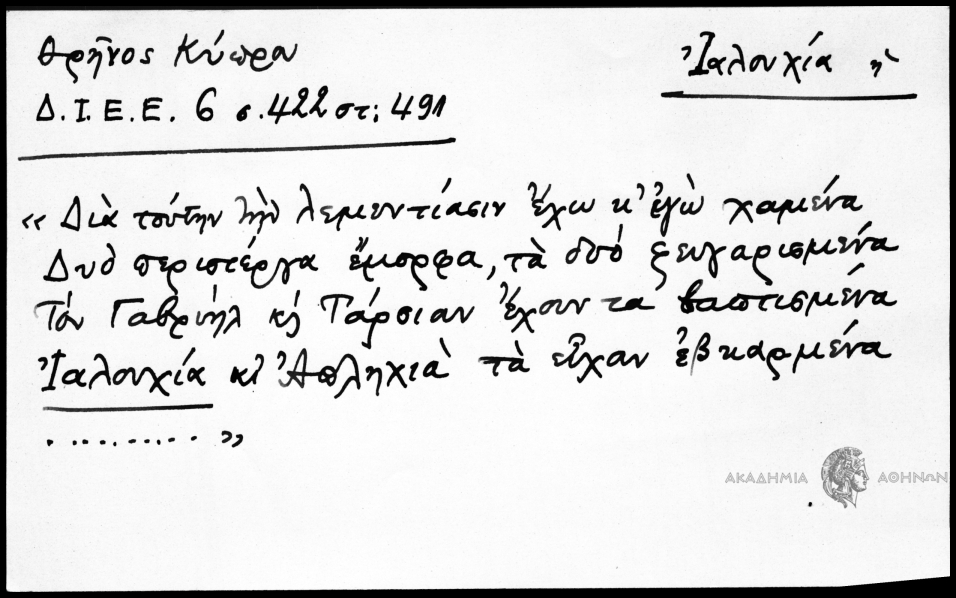 Θρῆνος Κύπρου
Ἰαλουχία ἡ
Δ.Ι.Ε.Ε. 6 σ.422 στ: 491
« Διὰ τούτην τὴν λεμεντίασιν ἔχω κ' ἐγὼ χαμένα
Δυὸ περιστέργα ἔμορφα, τὰ δυό ζευγαρισμένα
Τὸν Γαβριὴλ κὴ Τάρσιαν ἔχουν τα βαπτισμένα
Ἰαλουχία κι' Ἀπληχιὰ τὰ εἶχαν ἐβκαρμένα
.......... »
ΑΚΑΔΗΜΙΑ ΑΘΗΝΩΝ